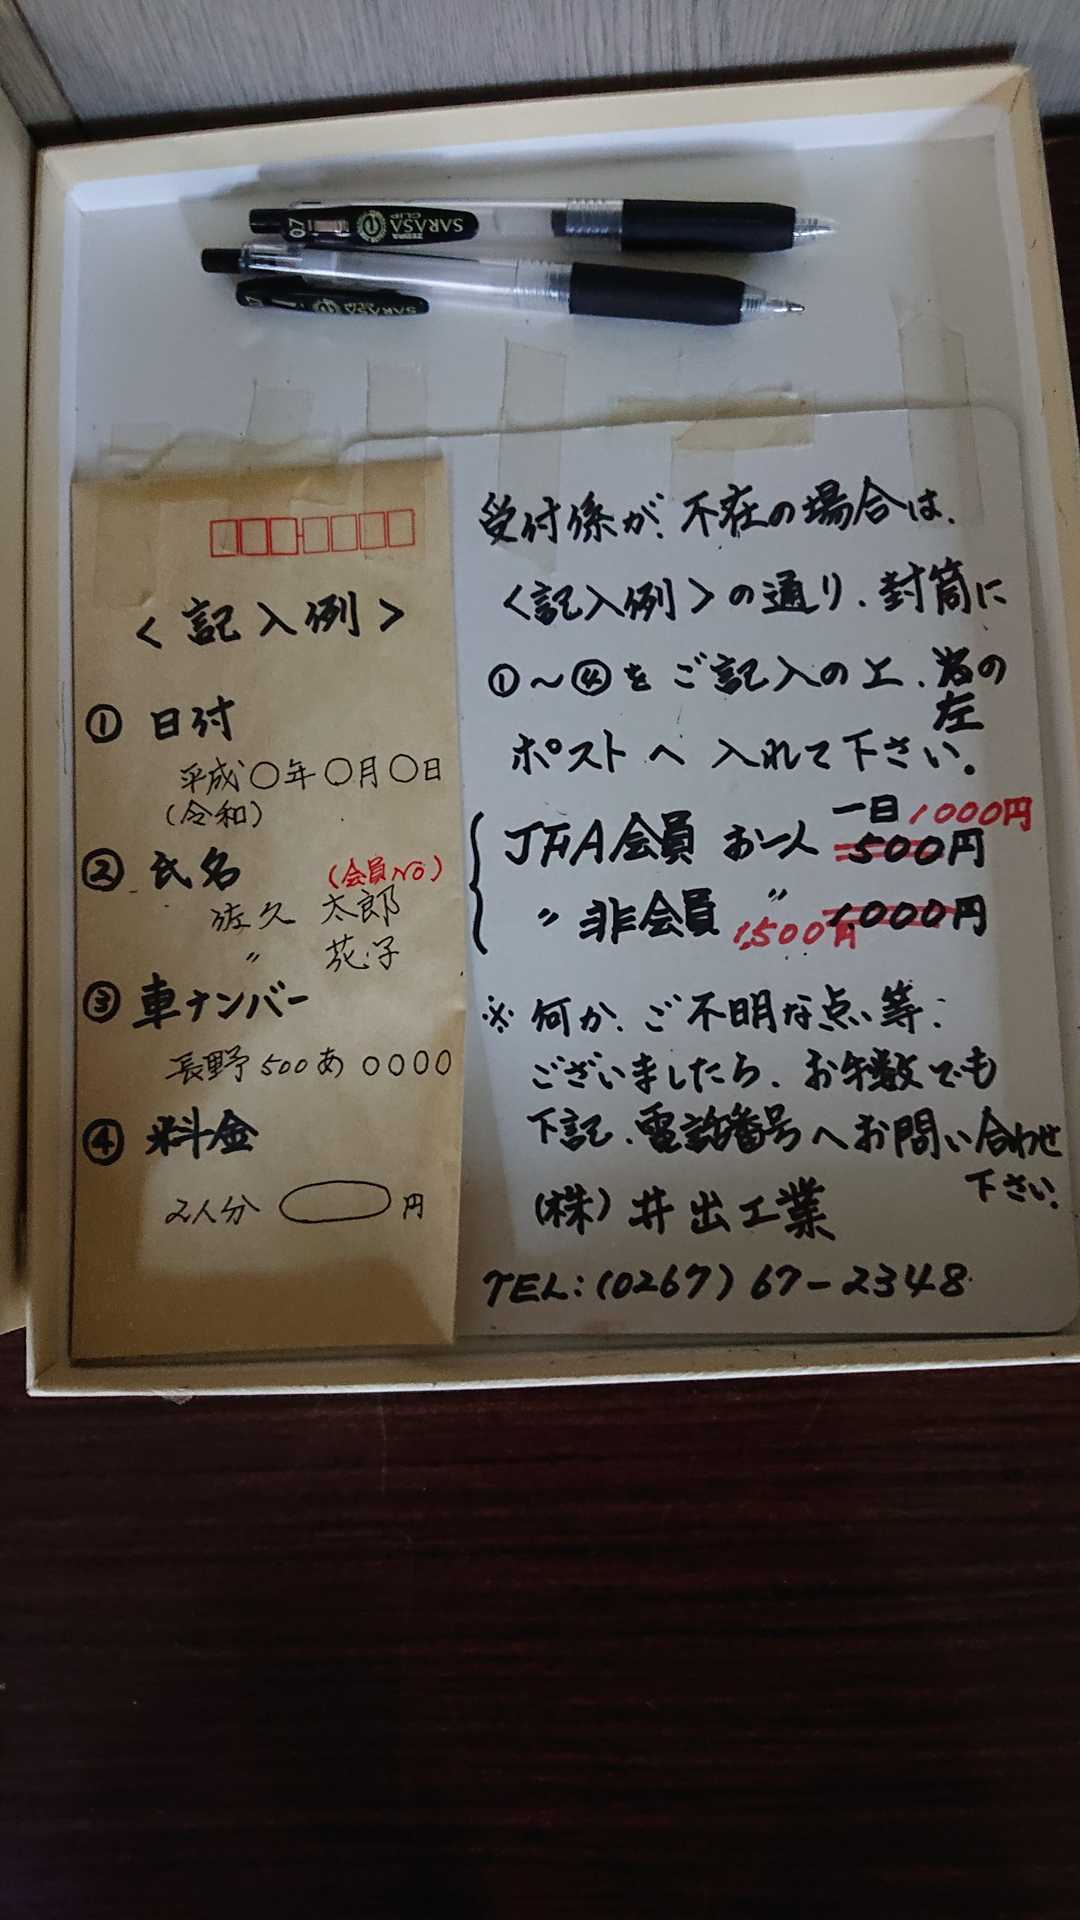 07 ZEBRA SARASA CLIP
SARASA
<記入例>
① 日付
平成○年○月○日
(令和)
② 氏名 (会員No)
佐久 太郎
〃 花子
③ 車ナンバー
長野500あ○○○○
④ 料金
2人分 円
受付係が、不在の場合は、
<記入例>の通り、封筒に
①~④をご記入の上、の
左
ポストへ入れて下さい。
一日1000円
JFA会員 お一人 500円
〃 非会員 〃 1,000円
1,500円
※何か、ご不明な点、等、
ございましたら、お手数でも
下記、電話番号へお問い合わせ
下さい。
(株)井出工業
TEL:(0267)67-2348